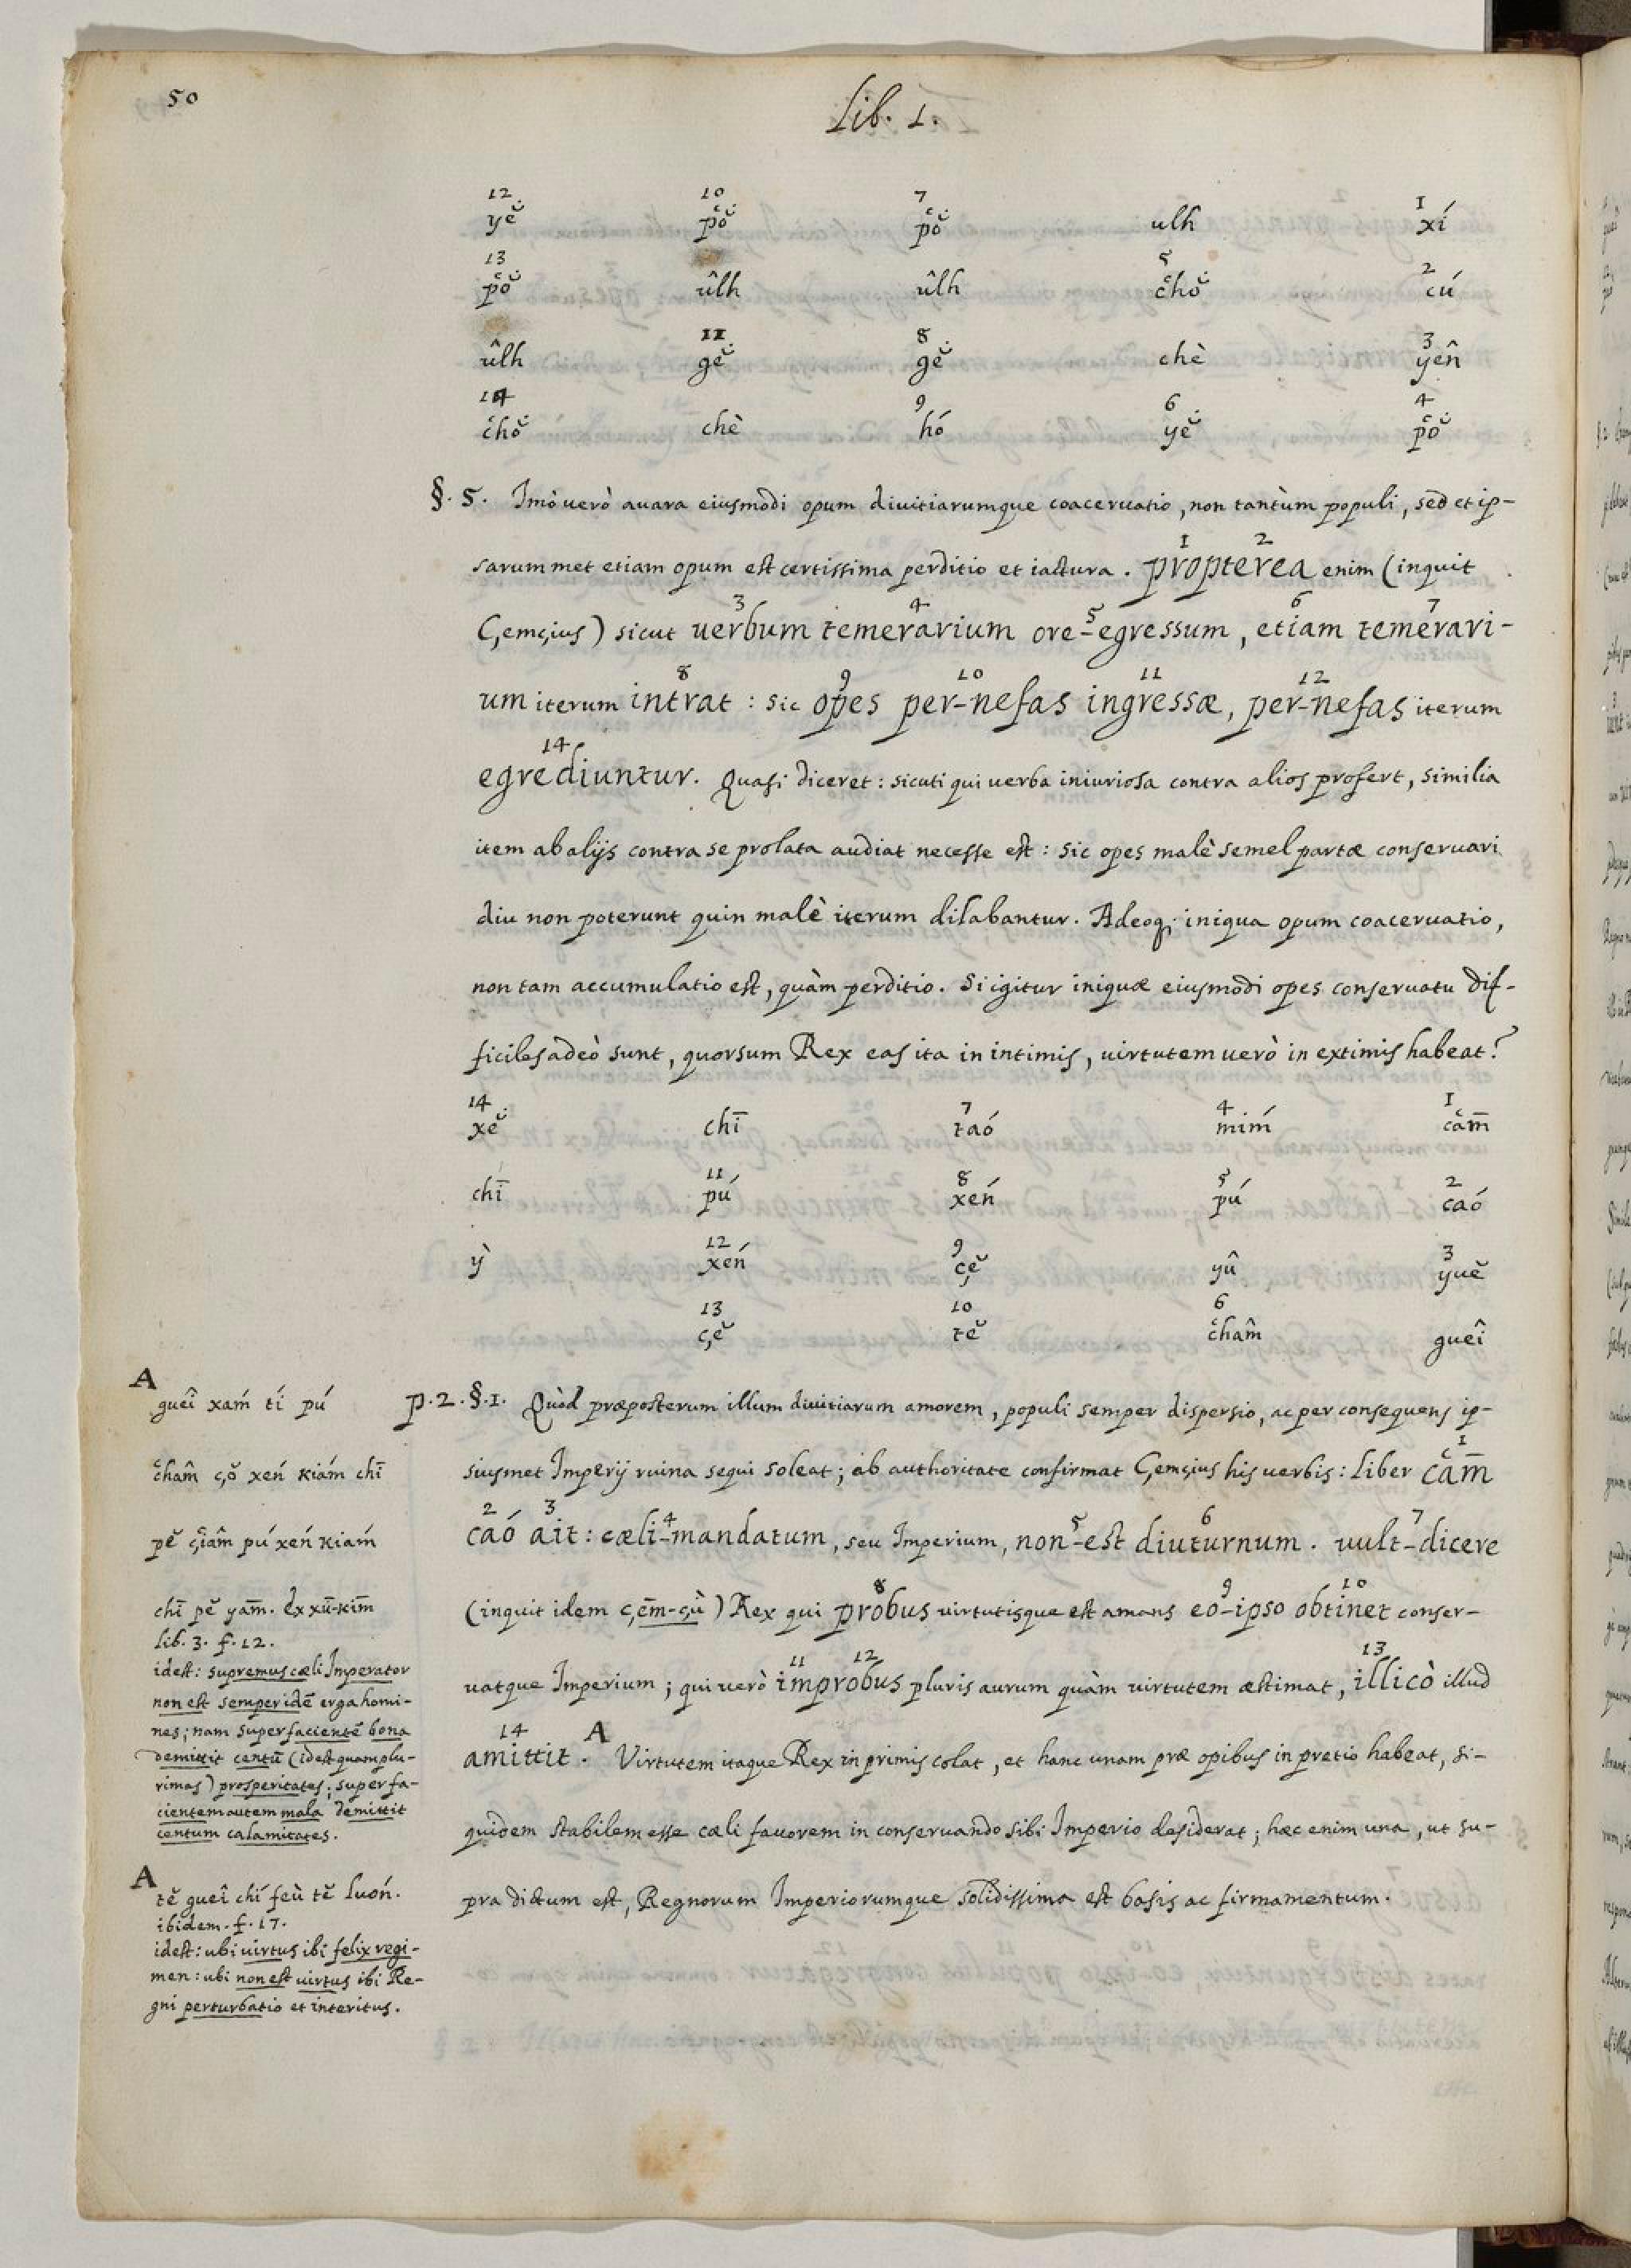 50
Lib. 1.
12 10 7 1
yĕ̇ pʻŏ̇ pʻŏ̇ ulh xí
13 5 2
pʻŏ̇ ûlh ûlh chʻŏ̇ cú
11 8 3
ûlh gĕ̇ gĕ̇ chè yên
14 9 6 4
chʻŏ̇ chè hó yĕ̇ pʻŏ̇
§. 5. Imò uerò auara eiusmodi opum diuitiarumque coaceruatio, non tantùm populi, sed et ip-
1 2
sarummet etiam opum est certissima perditio et iactura. propterea enim (inquit
3 4 5 6 7
Çemçius) sicut uerbum temerarium ore-egressum, etiam temerari-
8 9 10 11 12
um iterum intrat: sic opes per-nefas ingressæ, per-nefas iterum
14
egrediuntur. Quasi diceret: sicuti qui uerba iniuriosa contra alios profert, similia
item ab alijs contra se prolata audiat necesse est: sic opes malè semel partæ conseruari
diu non poterunt quin malè iterum dilabantur. Adeoq; iniqua opum coaceruatio,
non tam accumulatio est, quàm perditio. Si igitur iniquæ eiusmodi opes conseruatu dif-
ficiles adeò sunt, quorsum Rex eas ita in intimis, uirtutem uerò in extimis habeat?
14 7 4 1
xĕ̇ chī taó mím cʻām
11 8 5 2
chī pú xén pú caó
12 9 3
ỳ xén çĕ yû yuĕ
13 10 6
çĕ tĕ chʻâm gueî
p. 2. §. 1. Quòd præposterum illum diuitiarum amorem, populi semper dispersio, ac per consequens ip-
1
siusmet Imperij ruina sequi soleat; ab authoritate confirmat Çemçius his uerbis: Liber cʻām
2 3 4 5 6 7
caó ait: cæli-mandatum, seu Imperium, non-est diuturnum. uult-dicere
8 9 10
(inquit idem çēm-çù) Rex qui probus uirtutisque est amans eo-ipso obtinet conser-
11 12 13
uatque Imperium; qui uerò improbus pluris aurum quàm uirtutem æstimat, illicò illud
14 A
amittit. Virtutem itaque Rex in primis colat, et hanc unam præ opibus in pretio habeat, si-
quidem stabilem esse cæli fauorem in conseruando sibi Imperio desiderat; hæc enim una, ut su-
pra dictum est, Regnorum Imperiorumque solidissima est basis ac firmamentum.
A
gueî xám tí pú
chʻâm çŏ xén kiám chī
pĕ çʻiâm pú xén kiám
chī pĕ yām. Ex xū-kīm
lib. 3. f. 12.
idest: supremus cæli Imperator
non est semper idē erga homi-
nes; nam super facientē bona
demittit centū (idest quamplu-
rimas) prosperitates; super fa-
cientem autem mala demittit
centum calamitates.
A
tĕ gueî chí feù tĕ luón.
ibidem. f. 17.
idest: ubi uirtus ibi felix regi-
men: ubi non est uirtus ibi Re-
gni perturbatio et interitus.